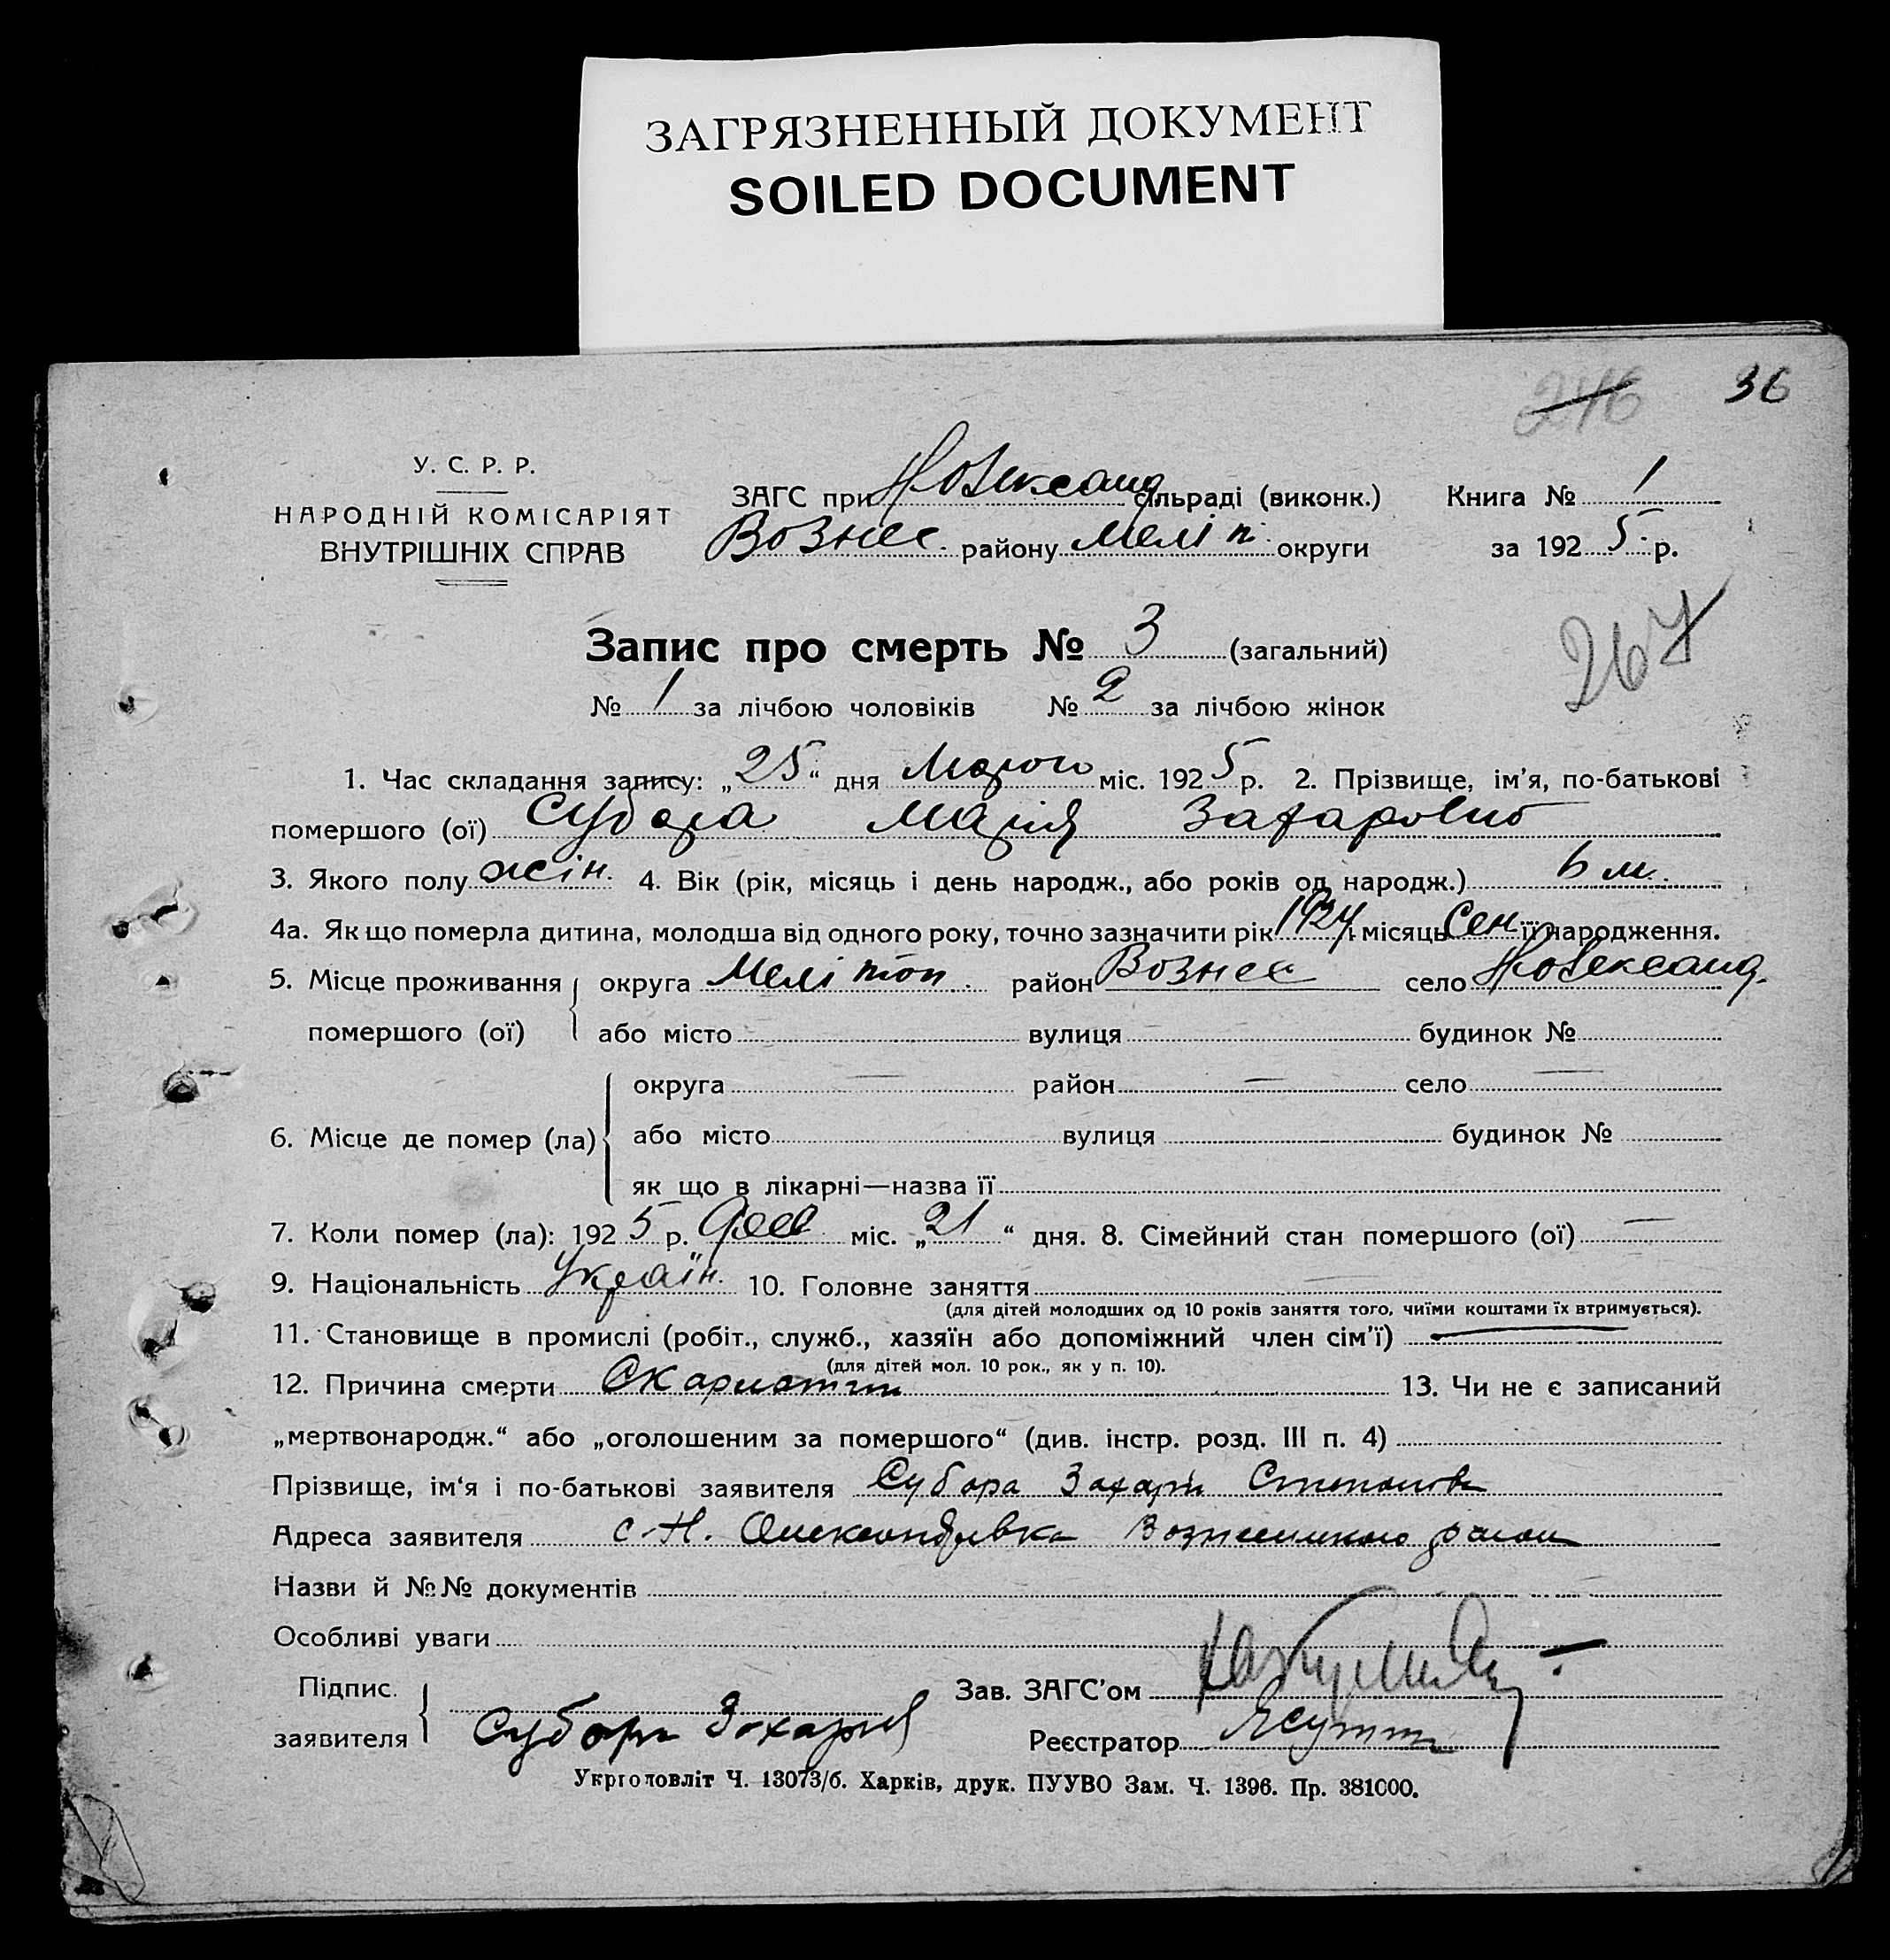 ЗАГРЯЗНЕННЫЙ ДОКУМЕНТ
SOILED DOCUMENT
246 36
У. С. Р. Р.
НАРОДНІЙ КОМІСАРІЯТ
ВНУТРІШНІХ СПРАВ
ЗАГС при Н Олександ сільраді (виконк.) Книга № 1
Вознес. району Меліт. округи за 1925 р.
267
Запис про смерть № 3 (загальний)
№ 1 за лічбою чоловіків № 2 за лічбою жінок
1. Час складання запису: „25“ дня Марта міс. 1925 р. 2. Прізвище, ім'я, по-батькові
помершого (ої) Субора Марія Захаровно
3. Якого полу жін. 4. Вік (рік, місяць і день народж., або років од народж.) 6 м.
4а. Як що померла дитина, молодша від одного року, точно зазначити рік 1924 і місяць Сен її народження.
5. Місце проживання округа Меліто́п. район Вознес село Н Олександ.
помершого (ої) або місто вулиця будинок №
округа — район — село —
6. Місце де помер (ла) або місто вулиця будинок №
як що в лікарні—назва її
7. Коли помер (ла): 1925 р. міс. „21“ дня. 8. Сімейний стан помершого (ої) —
9. Національність Україн. 10. Головне заняття —
(для дітей молодших од 10 років заняття того, чиїми коштами їх втримується).
11. Становище в промислі (робіт., служб., хазяїн або допоміжний член сім'ї) —
(для дітей мол. 10 рок., як у п. 10).
12. Причина смерти Скарлатин 13. Чи не є записаний
„мертвонародж.“ або „оголошеним за помершого“ (див. інстр. розд. III п. 4)
Прізвище, ім'я і по-батькові заявителя Субора Захарій Степанов
Адреса заявителя с. Н. Олександрівка Вознесенського району
Назви й №№ документів
Особливі уваги
Підпис. Зав. ЗАГС'ом
заявителя Субора Захарий Реєстратор
Укрголовліт Ч. 13073/б. Харків, друк. ПУУВО Зам. Ч. 1396. Пр. 381000.